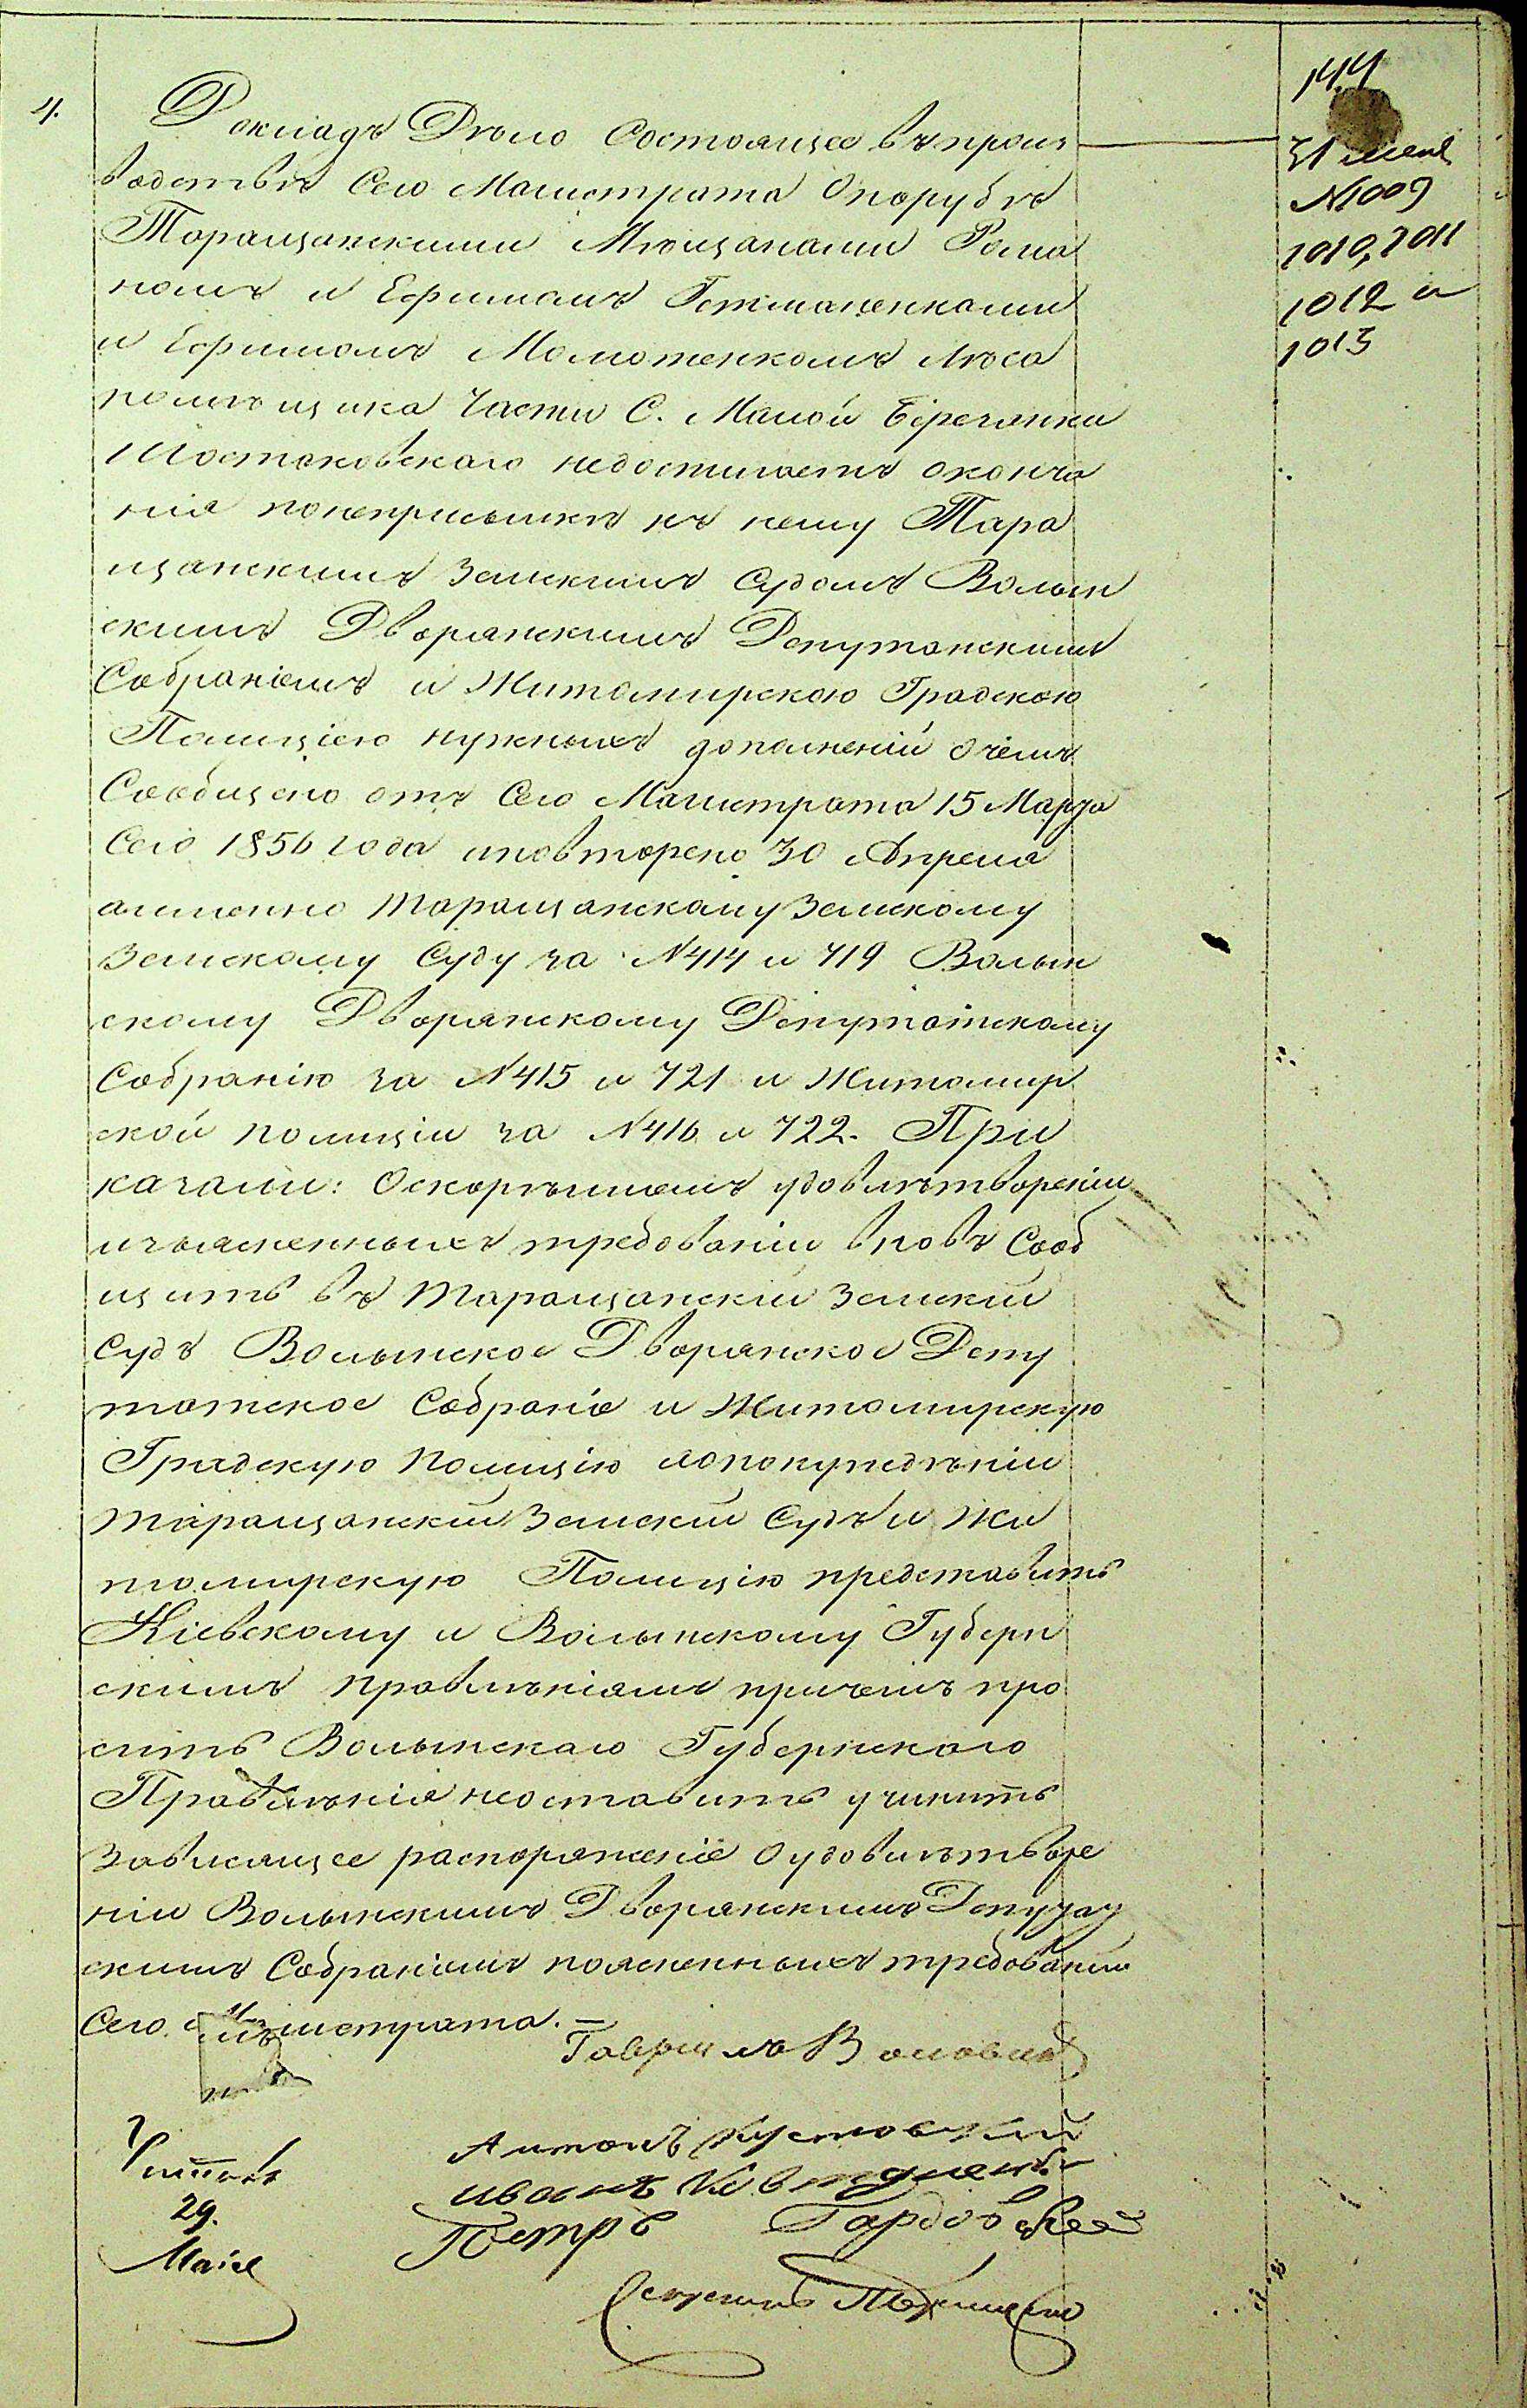 144
4.
Докладъ Дѣло Состоящее въ произ
водствѣ Сего Магистрата О порубкѣ
Таращанскими Мѣщанами Рома
номъ и Ефимомъ Гетманенками
и Ефимомъ Молотенкомъ лѣса
помѣщика Части С. Малой Березанки
Шостаковскаго недостигаетъ оконча
нія понеприсылкѣ къ нему Тара
щанскимъ Земскимъ Судомъ Волын
скимъ Дворянскимъ Депутатскимъ
Собраніемъ и Житомирскою Градскою
Полиціею нужныхъ дополненій Очемъ
Сообщено отъ Сего Магистрата 15 Марта
Сего 1856 года иповторено 30 Апреля
аименно Таращанскому Земскому
Земскому Суду за №414 и 719 Волын
скому Дворянскому Депутатскому
Собранію за №415 и 721 и Житомир
ской полиціи за №416 и 722. При
казали: Оскорѣйшемъ удовлѣтвореніи
изъясненныхъ требованіи вновь Сооб
щить въ Таращанскій Земскій
Судъ Волынское Дворянское Депу
татское Собраніе и Житомирскую
Градскую Полицію аопонужденіи
Таращанскій Земскій Судъ и Жи
томирскую Полицію представить
Кіевскому и Волынскому Губерн
скимъ правлѣніямъ причемъ про
сить Волынскаго Губернскаго
Правлѣнія неоставить учинить
Зависящее распоряженіе Оудовлѣтворе
ніи Волынскимъ Дворянскимъ Депутат
скимъ Собраніемъ поясненныхъ требованій
Сего Магистрата. —
31 мая
№1009
1010, 1011
1012 и
1013
Гаврiилъ
Антонъ
иванъ
Петръ Гардовскей
29.
Маія